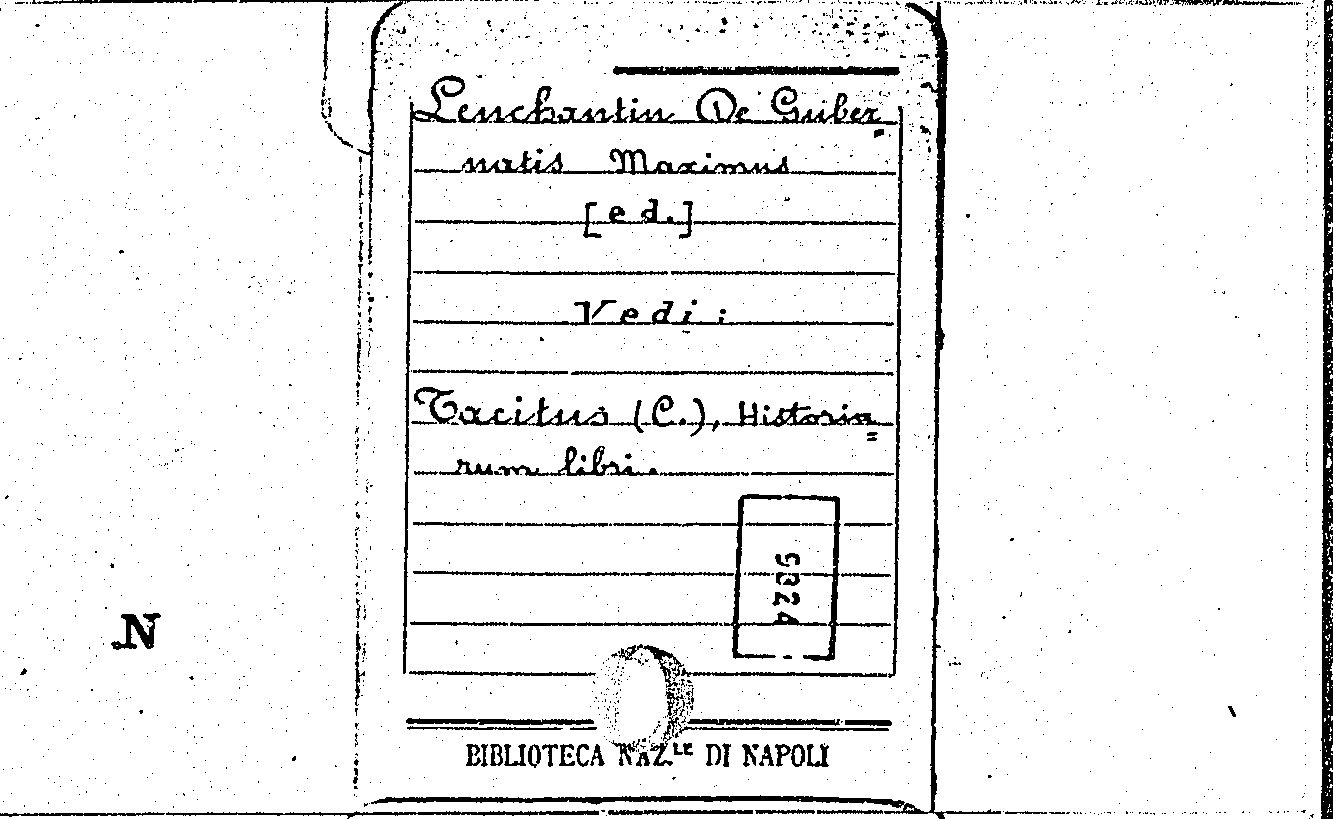 Lenchantin De Guber
natis Maximus
[ed.]
Vedi:
Tacitus (C.), Historia=
rum libri.
9824
N
BIBLIOTECA NAZ.LE DI NAPOLI